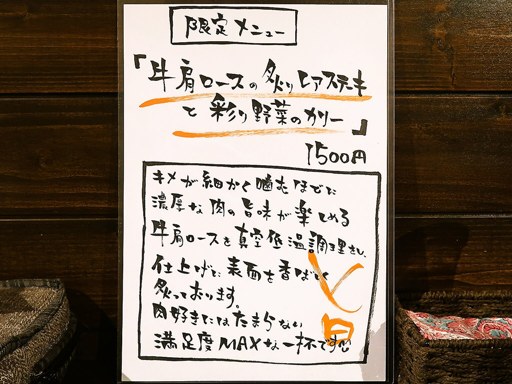 限定メニュー
「牛肩ロースの炙りレアステーキ
と彩り野菜のカリー」
1500円
キメが細かく噛むほどに
濃厚な肉の旨味が楽しめる
牛肩ロースを真空低温調理をし、
仕上げに表面を香ばしく
炙っております。
肉好きにはたまらない
満足度MAXな一杯です